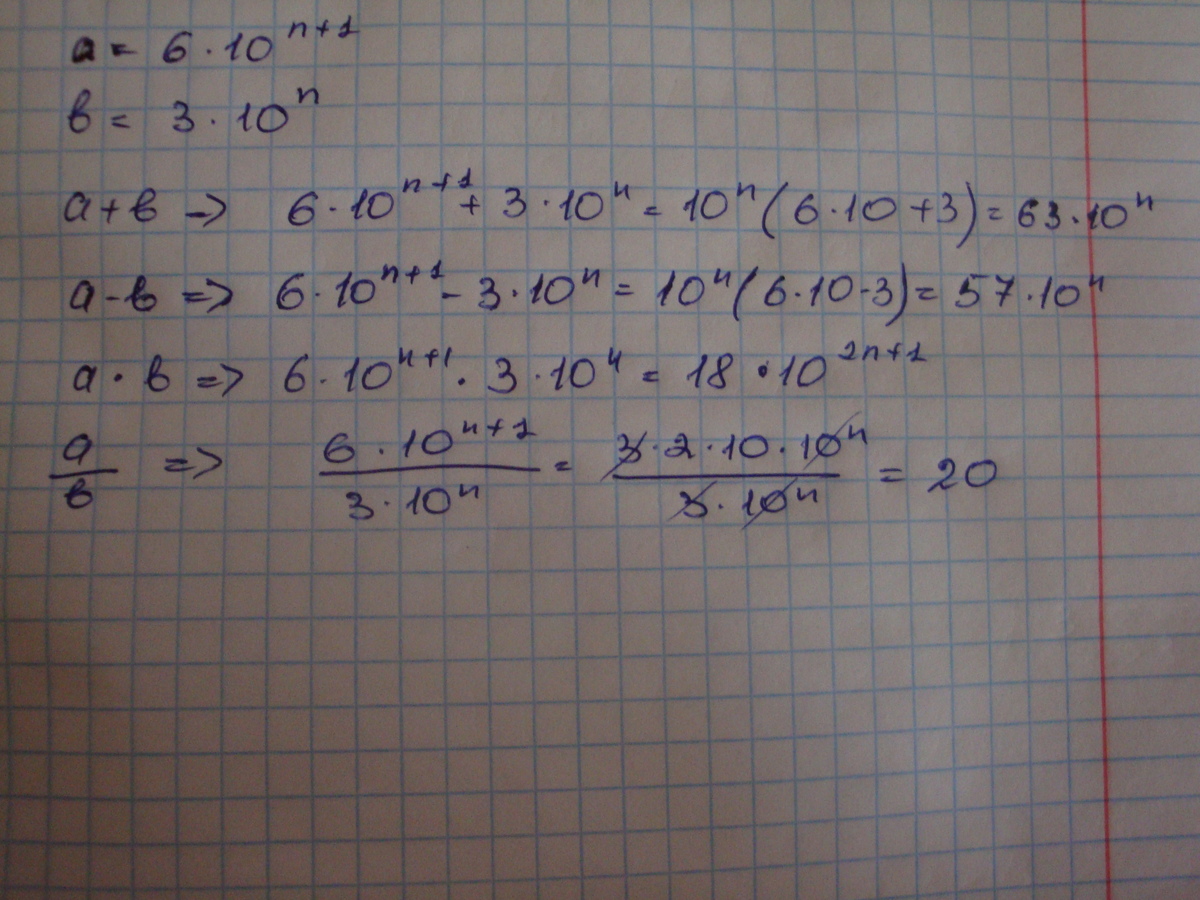 a = 6 · 10^{n+1}
в = 3 · 10^n
a + в -> 6 · 10^{n+1} + 3 · 10^n = 10^n (6 · 10 + 3) = 63 · 10^n
a - в => 6 · 10^{n+1} - 3 · 10^n = 10^n (6 · 10 - 3) = 57 · 10^n
a · в => 6 · 10^{n+1} · 3 · 10^n = 18 · 10^{2n+1}
a/в => (6 · 10^{n+1})/(3 · 10^n) = (3 · 2 · 10 · 10^n)/(3 · 10^n) = 20